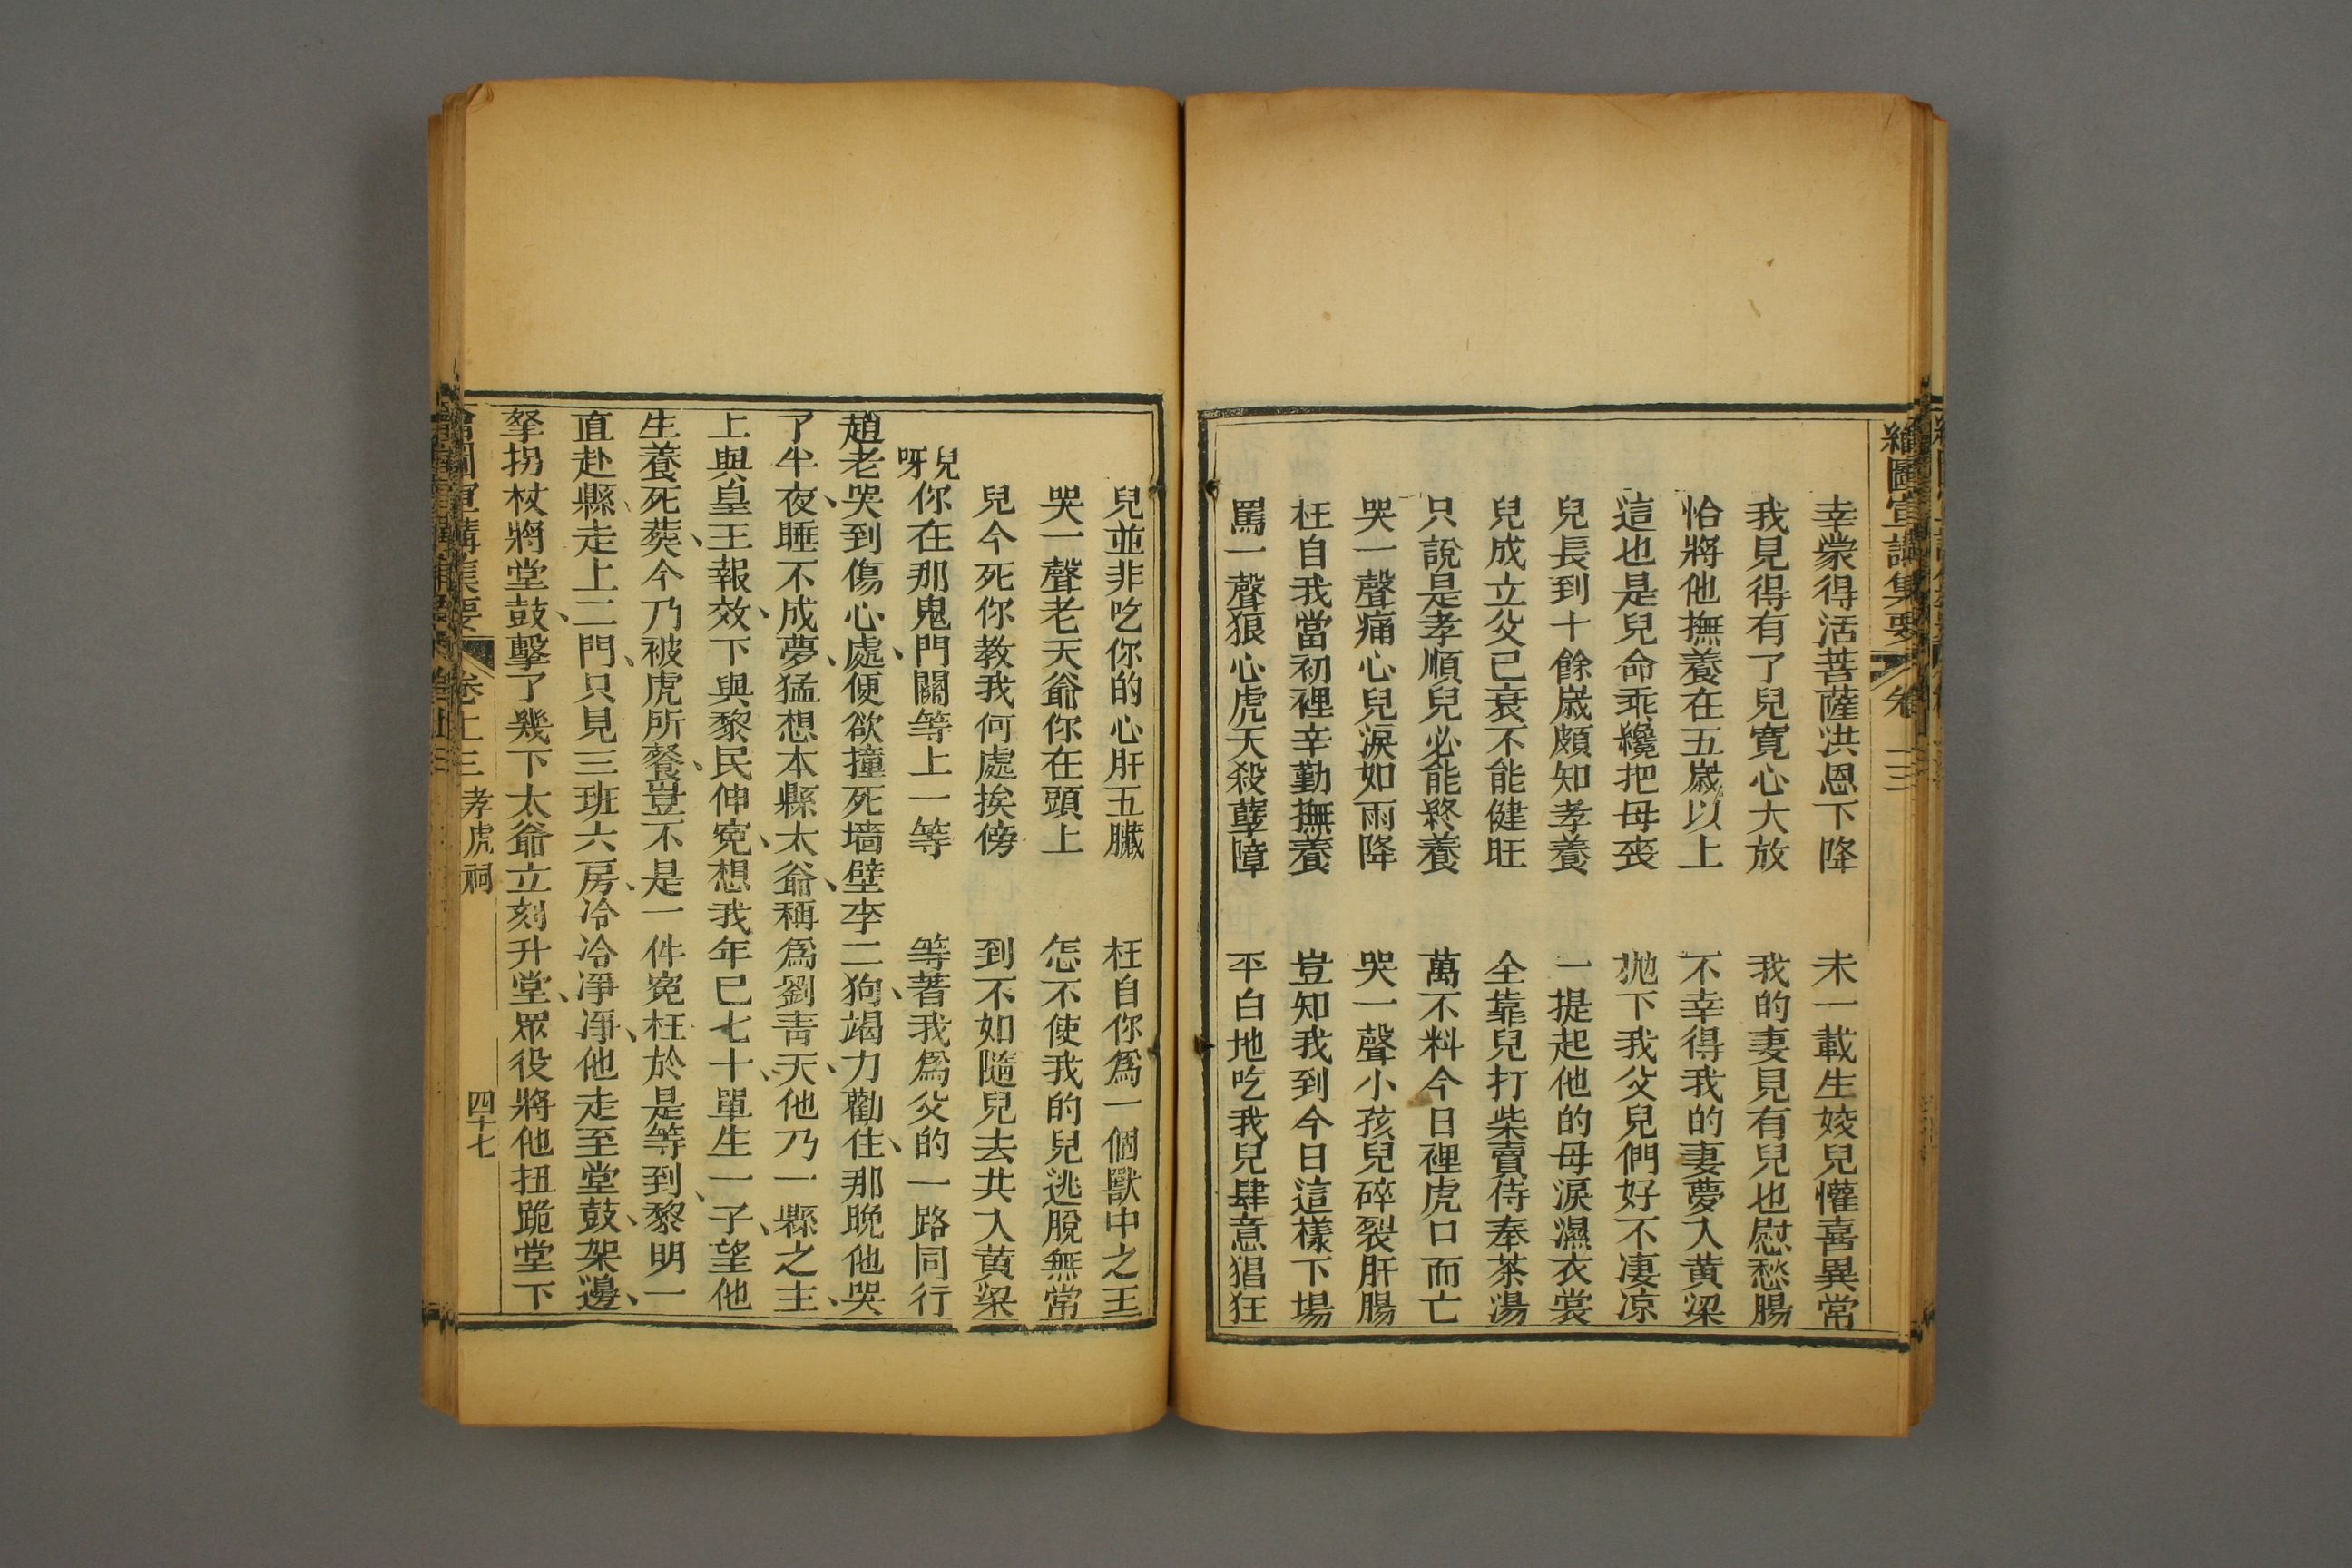 繪圖宣講集要 卷十三
幸蒙得活菩薩洪恩下降 未一載生姣兒懽喜異常
我見得有了兒寬心大放 我的妻見有兒也慰愁腸
恰將他撫養在五嵗以上 不幸得我的妻夢入黄梁
這也是兒命乖纔把母丧 抛下我父兒們好不凄凉
兒長到十餘嵗頗知孝養 一提起他的母淚濕衣裳
兒成立父已衰不能健旺 全靠兒打柴賣侍奉茶湯
只說是孝順兒必能終養 萬不料今日裡虎口而亡
哭一聲痛心兒淚如雨降 哭一聲小孩兒碎裂肝腸
枉自我當初裡辛勤撫養 豈知我到今日這樣下場
罵一聲狼心虎天殺孽障 平白地吃我兒肆意猖狂
兒並非吃你的心肝五臟 枉自你爲一個獸中之王
哭一聲老天爺你在頭上 怎不使我的兒逃脫無常
兒今死你教我何處挨傍 到不如隨兒去共入黄梁
兒呀你在那鬼門關等上一等 等著我爲父的一路同行
趙老哭到傷心處、便欲撞死墻壁李二狗、竭力勸住、那晚他哭
了半夜、睡不成夢、猛想本縣太爺、稱爲劉靑天、他乃一縣之主、
上與皇王報效、下與黎民伸寃、想我年已七十、單生一子、望他
生養死葬、今乃被虎所餐、豈不是一件寃枉於是等到黎明、一
直赴縣、走上二門、只見三班六房、冷冷凈凈、他走至堂鼓架邊、
拏拐杖將堂鼓、擊了幾下太爺立刻升堂、眾役將他扭跪堂下
繪圖宣講集要 卷十三 孝虎祠 四十七